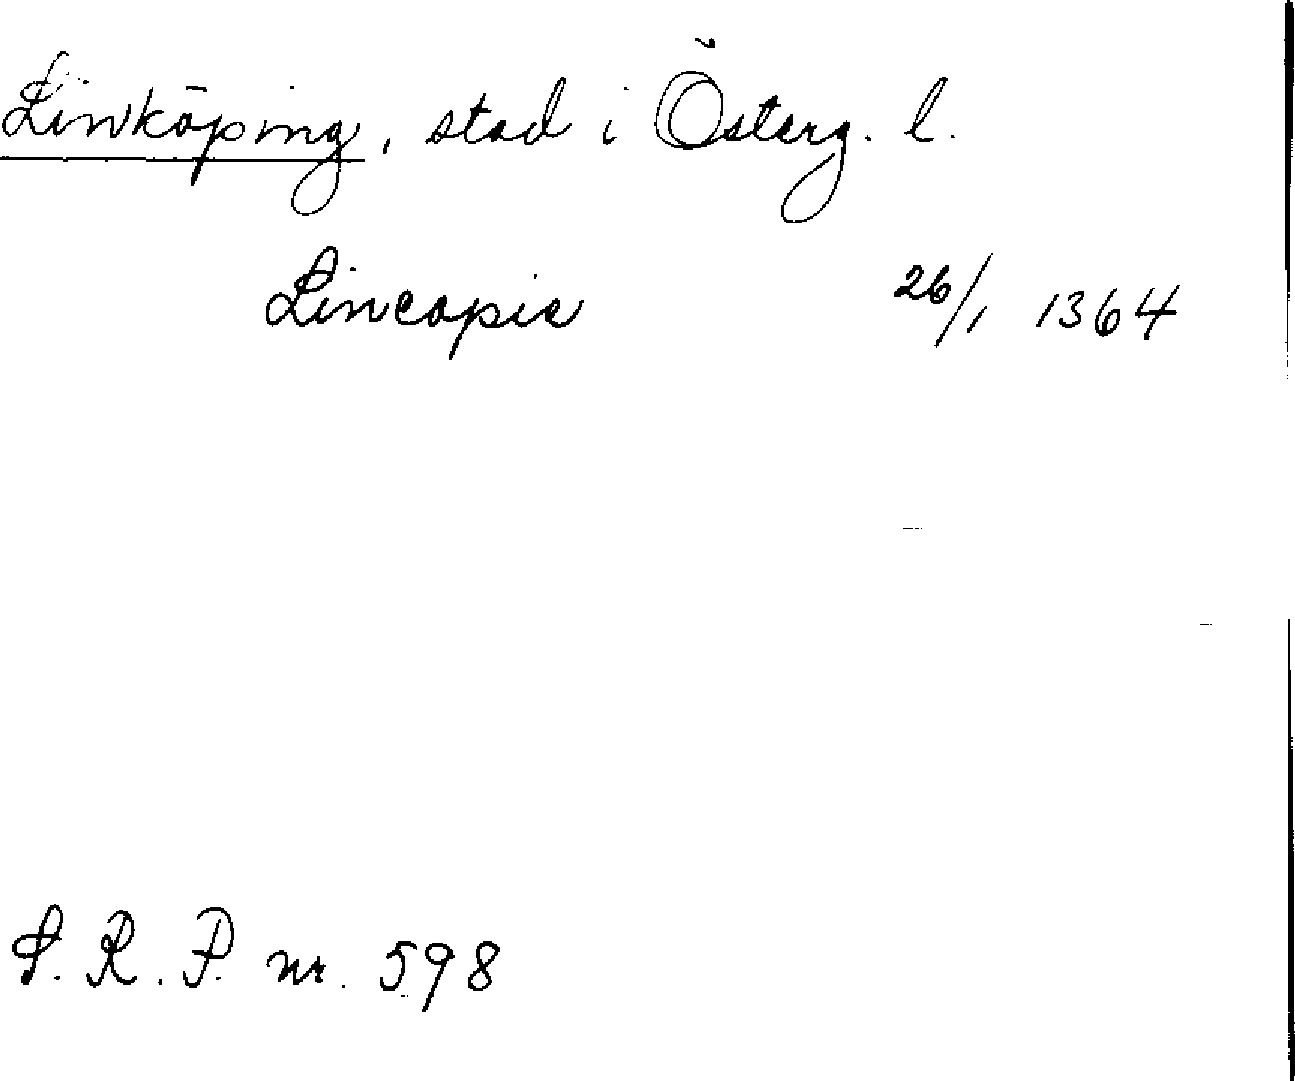 Linköping, stad i Österg. l.
Lincopie 26/1 1364
S. R. P. nr. 598